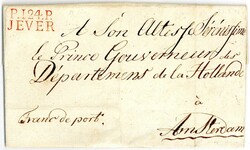 P.124.P.
JEVER
A Son Altesse Sérénissime
le Prince Gouverneur des
Départemens de la Hollande
à
Amsterdam
Franc de port.